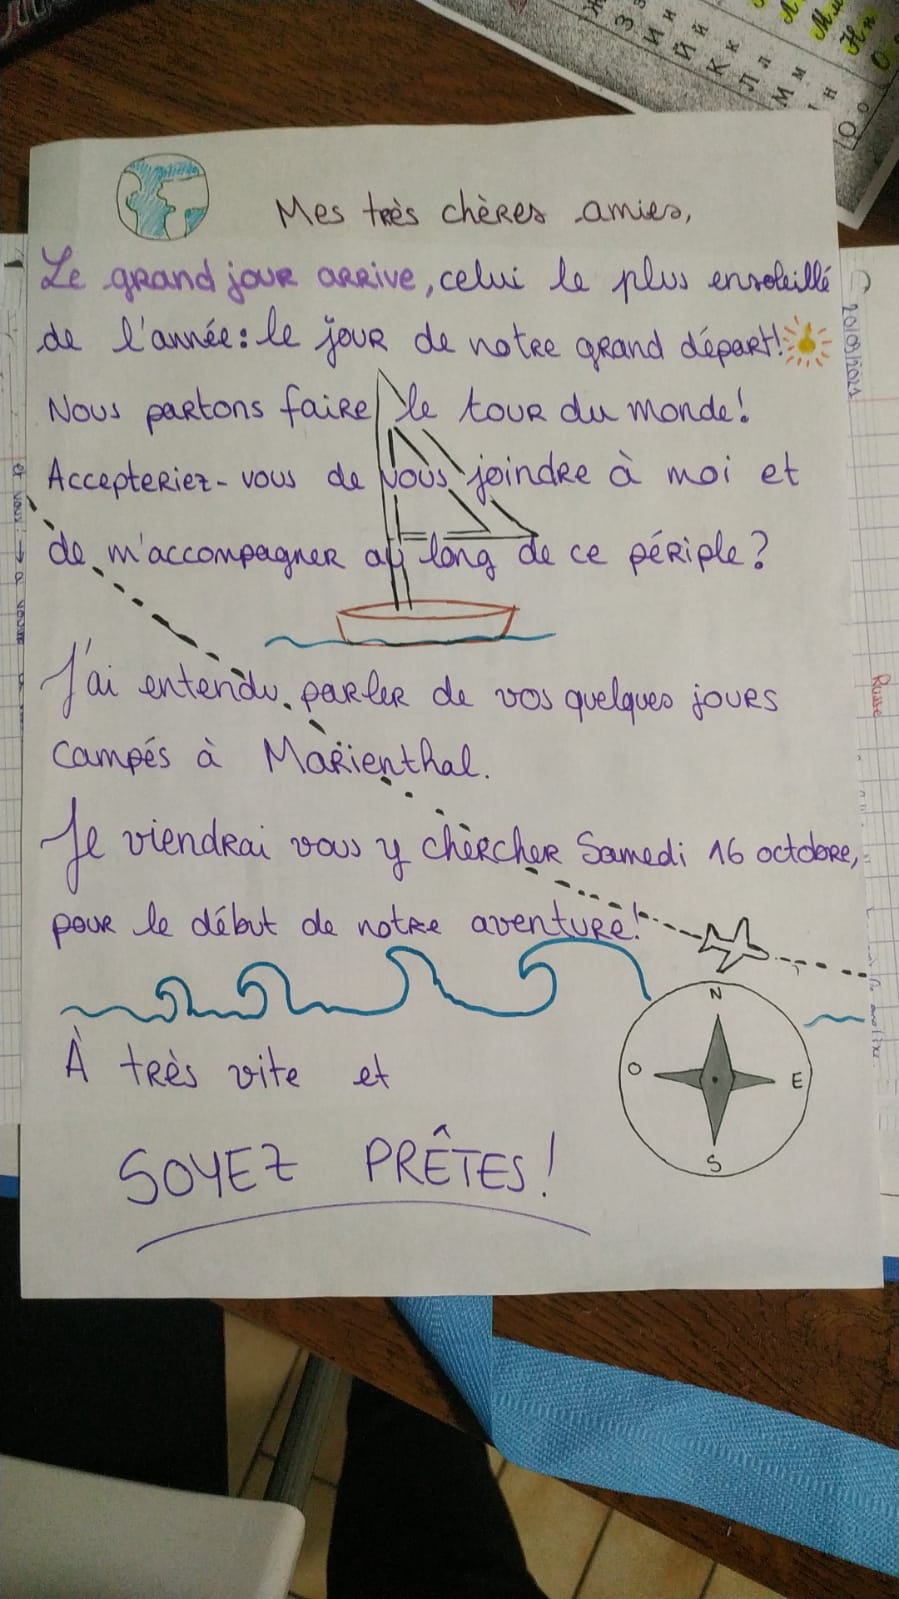 Mes très chères amies,
Le grand jour arrive, celui le plus ensoleillé
de l'année: le jour de notre grand départ!
Nous partons faire le tour du monde!
Accepteriez-vous de vous joindre à moi et
de m'accompagner au long de ce périple?
J'ai entendu parler de vos quelques jours
campés à Marienthal.
Je viendrai vous y chercher Samedi 16 octobre,
pour le début de notre aventure!
N
O
E
S
À très vite et
SOYEZ PRÊTES!
Russe
З
И и
Й й
К к
Л л
М м
н
О о
Мм
Нн
О